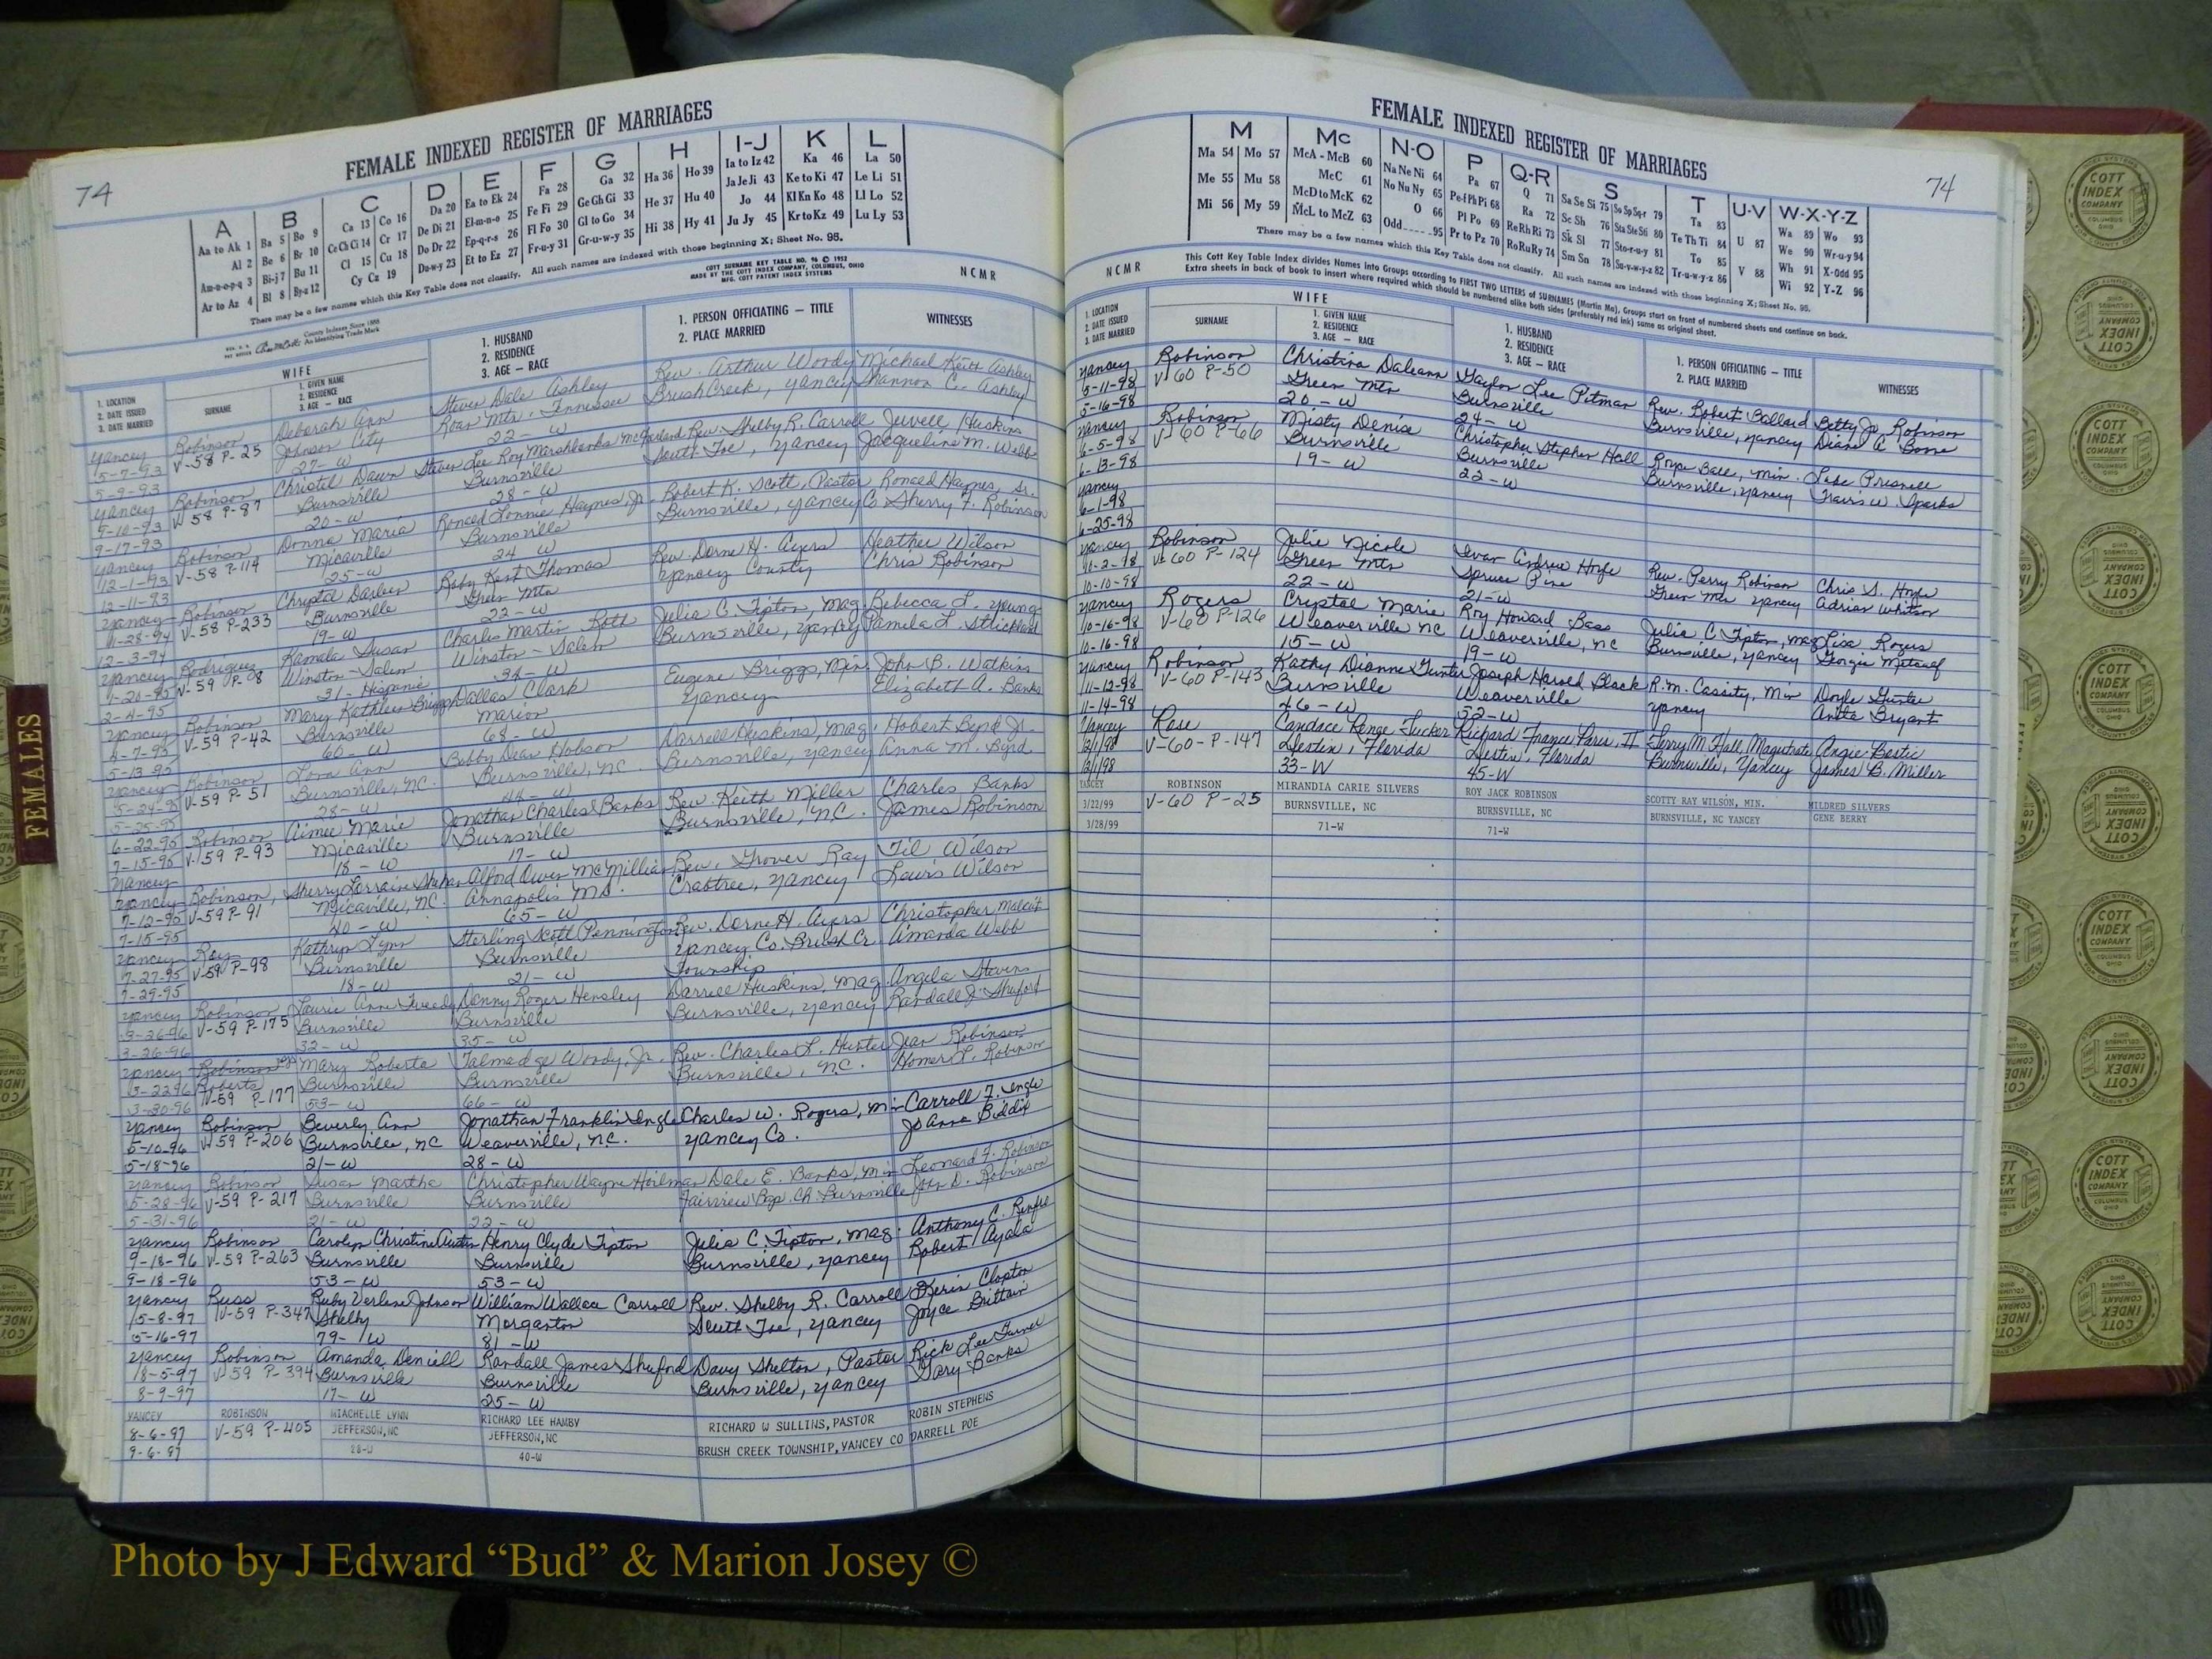 74
FEMALE INDEXED REGISTER OF MARRIAGES
A B C D E F G H I-J K L
Aa to Ak 1 Ba 5 Bo 9 Ca 13 Co 16 Da 20 Ea to Ek 24 Fa 28 Ga 32 Ha 36 Ho 39 Ia to Iz 42 Ka 46 La 50
Al 2 Be 6 Br 10 Ce Ch Ci 14 Cr 17 De Di 21 El-m-n-o 25 Fe Fi 29 Ge Gh Gi 33 He 37 Hu 40 Ja Je Ji 43 Ke to Ki 47 Le Li 51
Am-n-o-p-q 3 Bi-j 7 Bu 11 Cl 15 Cu 18 Do Dr 22 Ep-q-r-s 26 Fl Fo 30 Gl to Go 34 Hi 38 Hy 41 Jo 44 Kl Kn Ko 48 Ll Lo 52
Ar to Az 4 Bl 8 By-z 12 Cy Cz 19 Du-w-y 23 Et to Ez 27 Fr-u-y 31 Gr-u-w-y 35 Ju Jy 45 Kr to Kz 49 Lu Ly 53
There may be a few names which this Key Table does not classify. All such names are indexed with those beginning X; Sheet No. 95.
County Indexes Since 1888
An Identifying Trade Mark
COTT SURNAME KEY TABLE NO. 96 © 1952
MADE BY THE COTT INDEX COMPANY, COLUMBUS, OHIO
MFG. COTT PATENT INDEX SYSTEMS
NCMR
1. LOCATION
2. DATE ISSUED
3. DATE MARRIED
WIFE
SURNAME
1. GIVEN NAME
2. RESIDENCE
3. AGE — RACE
1. HUSBAND
2. RESIDENCE
3. AGE — RACE
1. PERSON OFFICIATING — TITLE
2. PLACE MARRIED
WITNESSES
Yancey Robinson Deborah Ann Steven Dale Ashley Rev. Arthur Woody Michael Keith Ashley
5-7-93 V-58 P-25 Johnson City Roan Mtn. Tennessee Brush Creek, Yancey Shannon C. Ashley
5-9-93 27-W 22-W
Yancey Robinson Christal Dawn Steven Lee Roy Marshbanks McFarland Rev. Shelby R. Carroll Jewell Huskins
9-10-93 V-58 P-87 Burnsville Burnsville South Toe, Yancey Jacqueline M. Webb
9-17-93 20-W 28-W
Yancey Robinson Donna Maria Ronald Lonnie Haynes, Jr. Robert K. Scott, Pastor Ronald Haynes, Sr.
12-1-93 V-58 P-114 Micaville Burnsville Burnsville, Yancey Co Sherry F. Robinson
12-11-93 25-W 24 W
Yancey Robinson Chrystal Darlen Roby Kent Thomas Rev. Dorne H. Ayers Heather Wilson
11-28-94 V-58 P-233 Burnsville Green Mtn Yancey County Chris Robinson
12-3-94 19-W 22-W
Yancey Rodriguez Kamala Susan Charles Martin Roth Julia C. Tipton, Mag. Rebecca L. Young
1-20-95 V-59 P-8 Winston-Salem Winston-Salem Burnsville, Yancey Pamela L. Strickland
2-4-95 31-Hispanic 34-W
Yancey Robinson Mary Kathleen Briggs Dallas Clark Eugene Briggs, Min John B. Watkins
4-7-95 V-59 P-42 Burnsville Marion Yancey Elizabeth A. Banks
5-13-95 60-W 68-W
Yancey Robinson Lora Ann Bobby Dean Hobson Darrell Huskins, Mag. Hobert Byrd Jr.
5-24-95 V-59 P-51 Burnsville, NC. Burnsville, NC. Burnsville, Yancey Anna M. Byrd
5-25-95 28-W 44-W
6-22-95 Robinson Aimee Marie Jonathan Charles Banks Rev. Keith Miller Charles Banks
7-15-95 V-59 P-93 Micaville Burnsville Burnsville, N.C. James Robinson
Yancey 18-W 17-W
Yancey Robinson, Sherry Lorraine Shehan Alford Owen McMillian Rev. Grover Ray Til Wilson
7-12-95 V-59 P-91 Micaville, NC. Annapolis Md. Crabtree, Yancey Lewis Wilson
7-15-95 40-W 65-W
Yancey Ray Kathryn Lynn Sterling Scott Pennington Rev. Dorne H. Ayers Christopher
7-27-95 V-59 P-98 Burnsville Burnsville Yancey Co. Brush Cr. Amanda Webb
7-29-95 18-W 21-W Township
Yancey Robinson Laurie Ann Tweedy Denny Roger Hensley Darrell Huskins, Mag. Angela Stevens
3-26-96 V-59 P-175 Burnsville Burnsville Burnsville, Yancey Randall J. Shuford
3-26-96 32-W 35-W
Yancey Robinson Mary Roberta Talmadge Woody, Jr. Rev. Charles L. Hunter Jean Robinson
3-22-96 Roberts Burnsville Burnsville Burnsville, NC. Homer L. Robinson
3-30-96 V-59 P-177 53-W 66-W
Yancey Robinson Beverly Ann Jonathan Franklin Engle Charles W. Rogers, Min Carroll F. Engle
5-10-96 V-59 P-206 Burnsville, NC Weaverville, NC. Yancey Co. Jo Anna Biddix
5-18-96 21-W 28-W
Yancey Robinson Susan Martha Christopher Wayne Heilman Dale E. Banks, Min Leonard F. Robinson
5-28-96 V-59 P-217 Burnsville Burnsville Fairview Bap. Ch. Burnsville John D. Robinson
5-31-96 21-W 22-W
Yancey Robinson Carolyn Christine Austin Henry Clyde Tipton Julia C. Tipton, Mag. Anthony C. Renfro
9-18-96 V-59 P-263 Burnsville Burnsville Burnsville, Yancey Robert Ayala
9-18-96 53-W 53-W
Yancey Russ Ruby Verlene Johnson William Wallace Carroll Rev. Shelby R. Carroll Kerin Clopton
5-8-97 V-59 P-347 Shelby Morganton South Toe, Yancey Joyce Brittain
5-16-97 79-W 81-W
Yancey Robinson Amanda Deniell Randall James Shuford Davy Shelton, Pastor Rick Lee Turner
8-5-97 V-59 P-394 Burnsville Burnsville Burnsville, Yancey Gary Banks
8-9-97 17-W 25-W
YANCEY ROBINSON MIACHELLE LYNN RICHARD LEE HAMBY RICHARD W SULLINS, PASTOR ROBIN STEPHENS
8-6-97 V-59 P-405 JEFFERSON, NC JEFFERSON, NC BRUSH CREEK TOWNSHIP, YANCEY CO DARRELL POE
9-6-97 28-W 40-W
FEMALES
74
FEMALE INDEXED REGISTER OF MARRIAGES
M Mc N-O P Q-R S T U-V W-X-Y-Z
Ma 54 Mo 57 McA - McB 60 Na Ne Ni 64 Pa 67 Q 71 Sa Se Si 75 So Sp Sq-r 79 Ta 83 U 87 Wa 89 Wo 93
Me 55 Mu 58 McC 61 No Nu Ny 65 Pe-f Ph Pi 68 Ra 72 Sc Sh 76 Sta Ste Sti 80 Te Th Ti 84 V 88 We 90 Wr-u-y 94
Mi 56 My 59 McD to McK 62 O 66 Pl Po 69 Re Rh Ri 73 Sk Sl 77 Sto-r-u-y 81 To 85 Wh 91 X-Odd 95
McL to McZ 63 Odd 95 Pr to Pz 70 Ro Ru Ry 74 Sm Sn 78 Su-v-w-y-z 82 Tr-u-w-y-z 86 Wi 92 Y-Z 96
There may be a few names which this Key Table does not classify. All such names are indexed with those beginning X; Sheet No. 95.
NCMR
This Cott Key Table Index divides Names into Groups according to FIRST TWO LETTERS of SURNAMES (Martin Ma), Groups start on front of numbered sheets and continue on back.
Extra sheets in back of book to insert where required which should be numbered alike both sides (preferably red ink) same as original sheet.
1. LOCATION
2. DATE ISSUED
3. DATE MARRIED
WIFE
SURNAME
1. GIVEN NAME
2. RESIDENCE
3. AGE — RACE
1. HUSBAND
2. RESIDENCE
3. AGE — RACE
1. PERSON OFFICIATING — TITLE
2. PLACE MARRIED
WITNESSES
Yancey Robinson Christina Daleann Taylor Lee Pitman Rev. Robert Ballard Betty Jo Robinson
5-11-98 V-60 P-50 Green Mtn Burnsville Burnsville, Yancey Diane A. Boone
5-16-98 20-W 24-W
Yancey Robinson Misty Denise Christopher Stephen Hall Roye Ball, Min. Luke Presnell
6-5-98 V-60 P-66 Burnsville Burnsville Burnsville, Yancey Travis W. Sparks
6-13-98 19-W 22-W
Yancey
6-1-98
6-25-98
Yancey Robinson Julie Nicole Ivan Andrew Hoyle Rev. Perry Robinson Chris S. Hoyle
10-2-98 V-60 P-124 Green Mtn Spruce Pine Green Mtn Yancey Adrian Whitson
10-10-98 22-W 21-W
Yancey Rogers Crystal Marie Roy Howard Bass Julia C Tipton, Mag Lisa Rogers
10-16-98 V-60 P-126 Weaverville NC Weaverville, NC Burnsville, Yancey Georgie Metcalf
10-16-98 15-W 19-W
Yancey Robinson Kathy Dianne Gunter Joseph Harold Black R.M. Cassity, Min Doyle Gunter
11-12-98 V-60 P-143 Burnsville Weaverville Yancey Anita Bryant
11-14-98 46-W 52-W
Yancey Rose Candace Renge Tucker Richard Francis Paris, II Terry M. Hall, Magistrate Angie Bostic
12/1/98 V-60-P-147 Destin, Florida Destin, Florida Burnsville, Yancey James B. Miller
12/1/98 33-W 45-W
YANCEY ROBINSON MIRANDIA CARIE SILVERS ROY JACK ROBINSON SCOTTY RAY WILSON, MIN. MILDRED SILVERS
3/22/99 V-60 P-25 BURNSVILLE, NC BURNSVILLE, NC BURNSVILLE, NC YANCEY GENE BERRY
3/28/99 71-W 71-W
COTT INDEX COMPANY COLUMBUS OHIO
Photo by J Edward “Bud” & Marion Josey ©